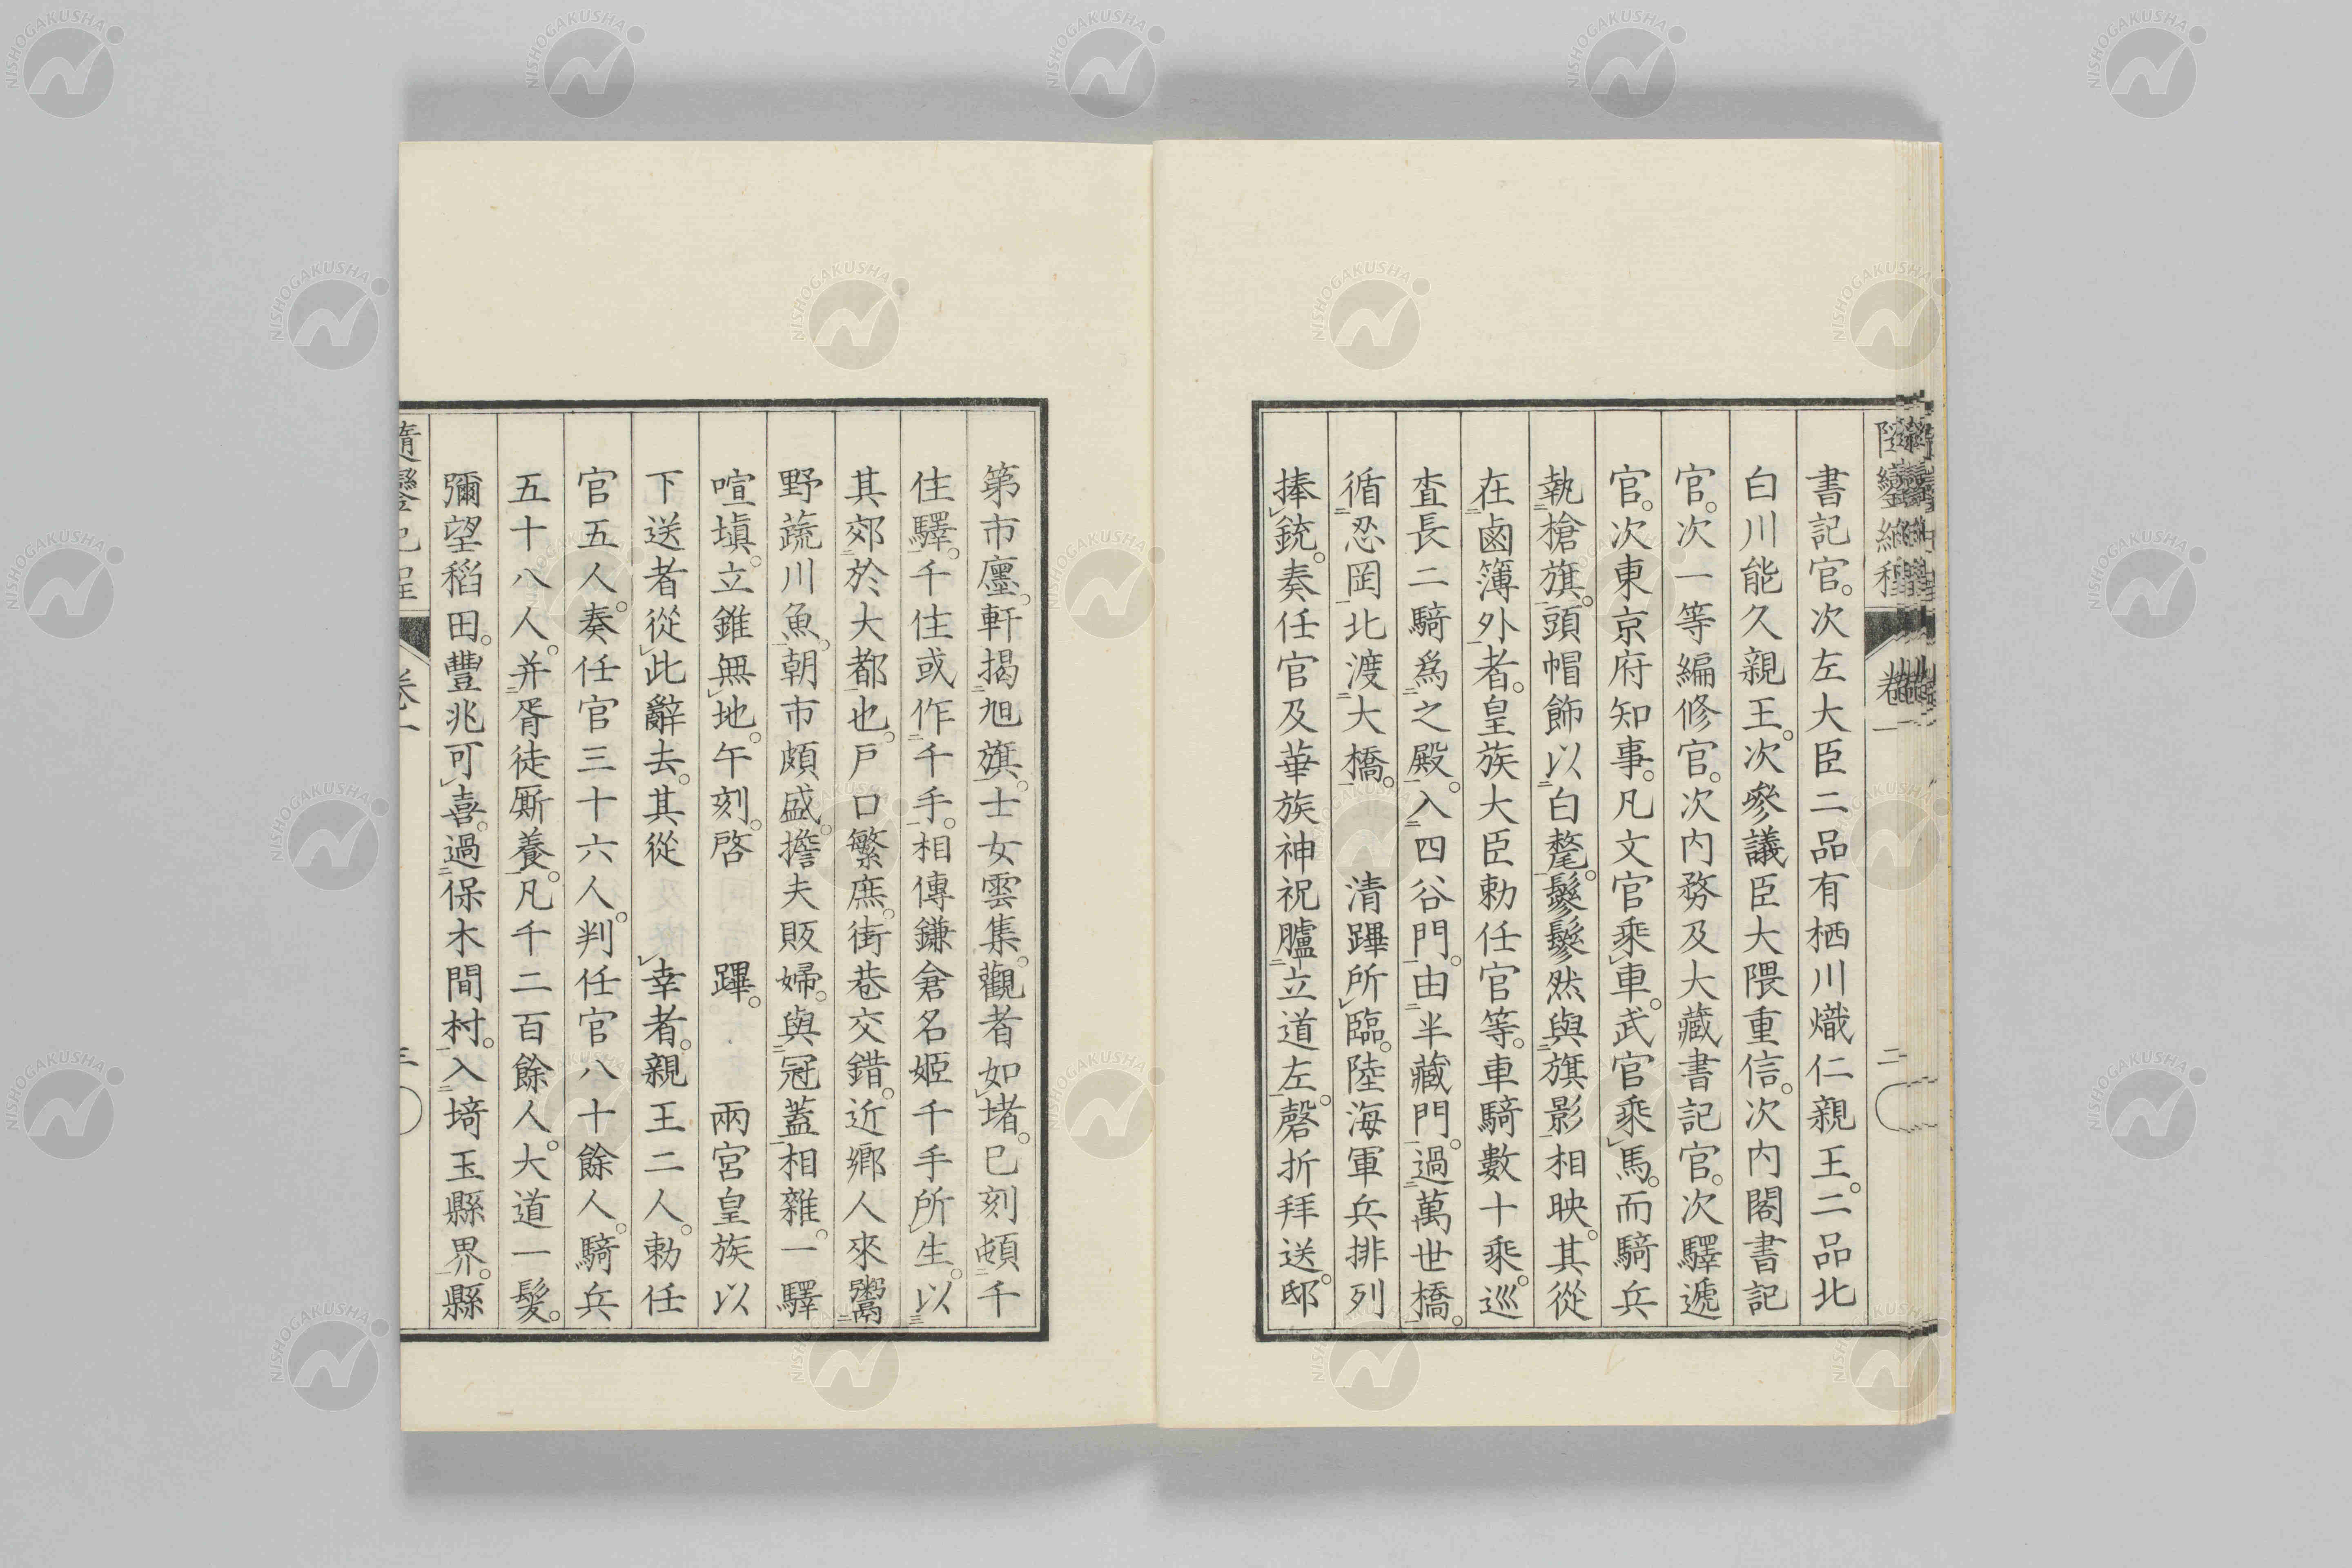 書記官。次左大臣二品有栖川熾仁親王。二品北
白川能久親王。次參議臣大隈重信。次内閣書記
官。次一等編修官。次内務及大藏書記官。次驛遞
官。次東京府知事。凡文官乘レ車。武官乘レ馬。而騎兵
執二槍旗一。頭帽飾以二白氅一。鬖鬖然與二旗影一相映。其從
在二鹵簿外一者。皇族大臣勅任官等。車騎數十乘。巡
査長二騎爲二之殿一。入二四谷門一。由二半藏門一。過二萬世橋一。
循二忍岡一北渡二大橋一。　清蹕所レ臨。陸海軍兵排列
捧レ銃。奏任官及華族神祝臚二立道左一。磬折拜送。邸
第市廛。軒揭二旭旗一。士女雲集。觀者如レ堵。巳刻頓二千
住驛一。千住或作二千手一。相傳鎌倉名姬千手所レ生。以三
其郊二於大都一也。戶口繁庶。街巷交錯。近鄉人來鬻二
野蔬川魚一。朝市頗盛。擔夫販婦。與二冠蓋一相雜。一驛
喧塡。立錐無レ地。午刻。啓　蹕。　兩宮皇族以
下送者從レ此辭去。其從レ　幸者。親王二人。勅任
官五人。奏任官三十六人。判任官八十餘人。騎兵
五十八人。并二胥徒厮養一。凡千二百餘人。大道一髮。
彌望稻田。豐兆可レ喜。過二保木間村一。入二埼玉縣界一。縣
隨鑾紀程
卷一
二
三
NISHOGAKUSHA